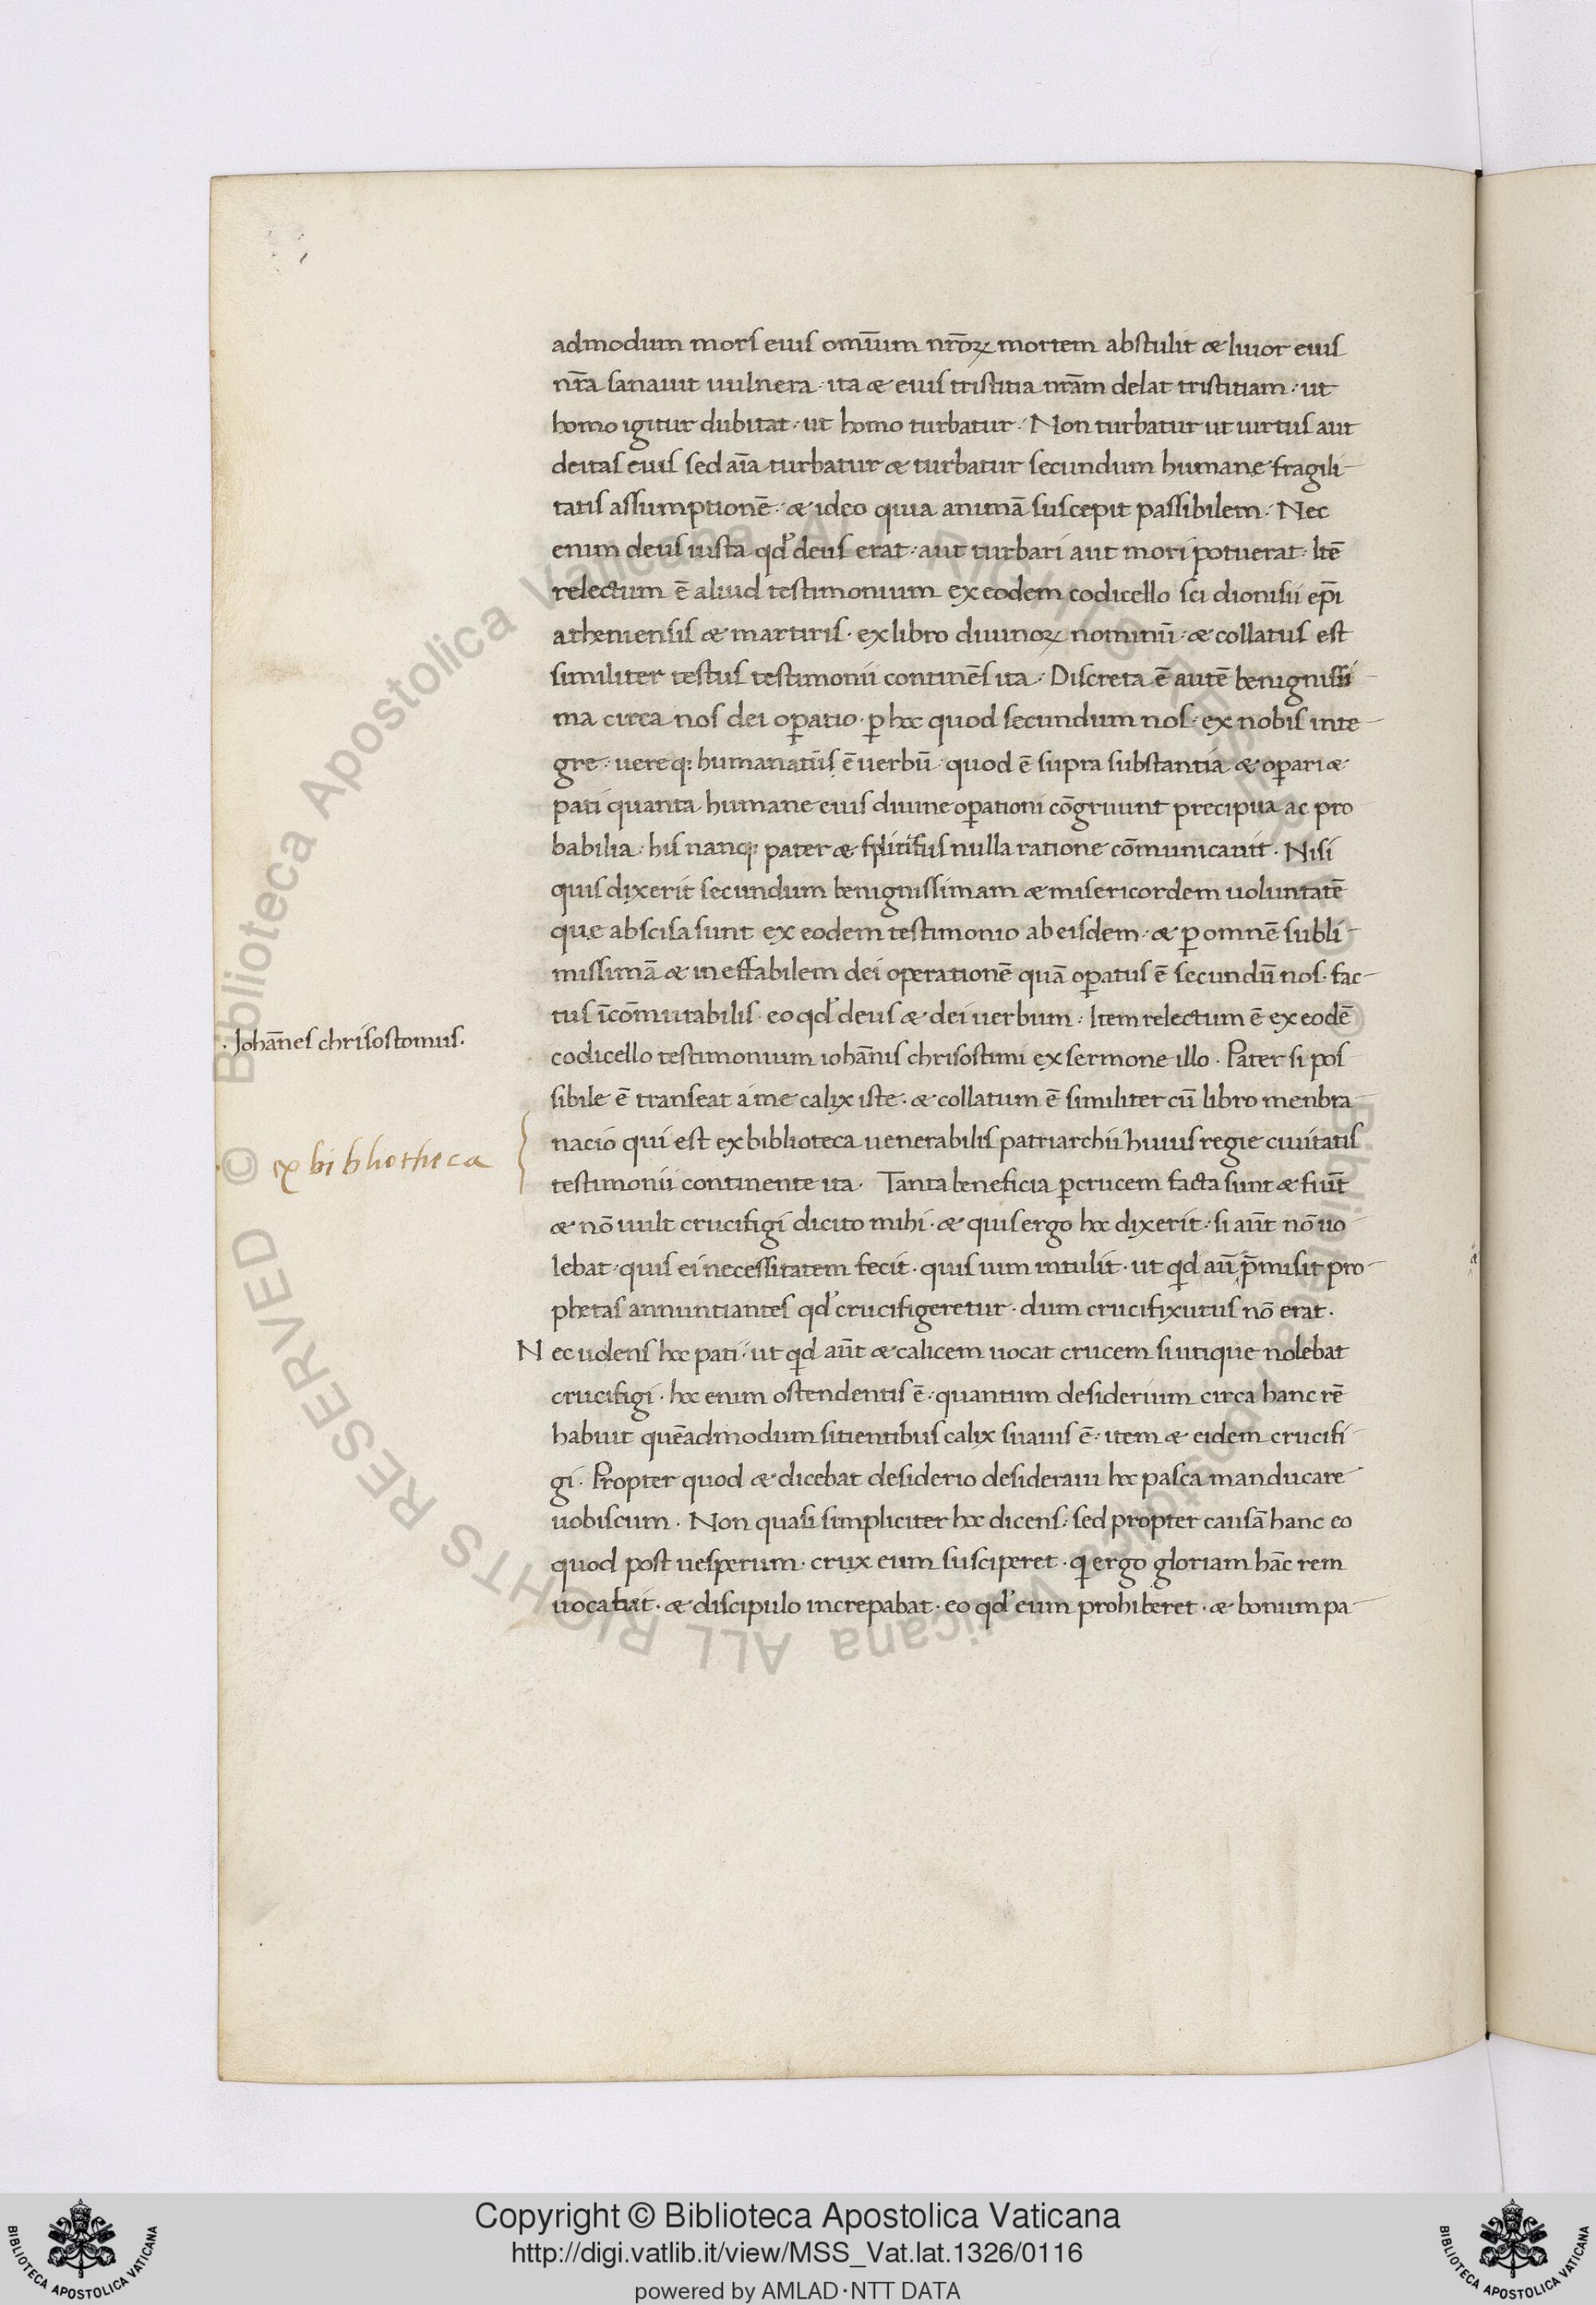 admodum mors eius omīum nr̄oꝝ mortem abstulit & liuor eius
nr̄a sanauit uulnera · ita & eius tristitia nr̄am delat tristitiam · ut
homo igitur dubitat · ut homo turbatur · Non turbatur ut uirtus aut
deitas eius sed aīa turbatur & turbatur secundum humane fragili-
tatis assumptionē · & ideo quia animā suscepit passibilem · Nec
enim deus iusta qd̓ deus erat · aut turbari aut mori potuerat · Itē
relectum ē aliud testimonium ex eodem codicello sci dionisii ep̄i
atheniensis & martiris · ex libro diuinoꝝ nominū · & collatus est
similiter testus testimonii continēs ita · Discreta ē autē benignissi-
ma circa nos dei oꝑatio · ꝑ hoc quod secundum nos · ex nobis inte-
gre · uereq; humanatus ē uerbū · quod ē supra substantia & oꝑari &
pati quanta humane eius diuine oꝑationi cōgruunt precipua ac pro
babilia · his nanq; pater & nulla ratione cōmunicauit · Nisi
quis dixerit secundum benignissimam & misericordem uoluntatē
que abscisa sunt ex eodem testimonio ab eisdem · & ꝑ omnē subli-
missimā & ineffabilem dei operationē quā oꝑatus ē secundū nos · fac-
tus īcōmutabilis · eo qd̓ deus & dei uerbum · Item relectum ē ex eodē
· Johānes chrisostomus ·
codicello testimonium iohānis chrisostimi ex sermone illo · Pater si pos
sibile ē transeat a me calix iste · & collatum ē similiter cū libro menbra-
nacio qui est ex biblioteca uenerabilis patriarchii huius regie ciuitatis
ex bibliotheca
testimonii continente ita · Tanta beneficia ꝑ crucem facta sunt & fiūt
& nō uult crucifigi dicito mihi · & quis ergo hoc dixerit · si aūt nō uo-
lebat · quis ei necessitatem fecit · quis uim intulit · ut qid aū p̄misit pro-
phetas annuntiantes qd̓ crucifigeretur · dum crucifixurus nō erat ·
Nec uolens hoc pati · ut qid aūt & calicem uocat crucem si utique nolebat
crucifigi · hoc enim ostendentis ē · quantum desiderium circa hanc rē
habuit quēadmodum sitientibus calix suauis ē · item & eidem crucifi-
gi · Propter quod & dicebat desiderio desideraui hoc pasca manducare
uobiscum · Non quasi simpliciter hoc dicens · sed propter causā hanc eo
quod post uesperum · crux eum susciperet · qi ergo gloriam hāc rem
uocabat · & discipulo increpabat · eo qd̓ eum prohiberet · & bonum pa-
Copyright © Biblioteca Apostolica Vaticana
http://digi.vatlib.it/view/MSS_Vat.lat.1326/0116
powered by AMLAD·NTT DATA
BIBLIOTECA APOSTOLICA VATICANA
BIBLIOTECA APOSTOLICA VATICANA
© Biblioteca Apostolica Vaticana ALL RIGHTS RESERVED
© Biblioteca Apostolica Vaticana ALL RIGHTS RESERVED